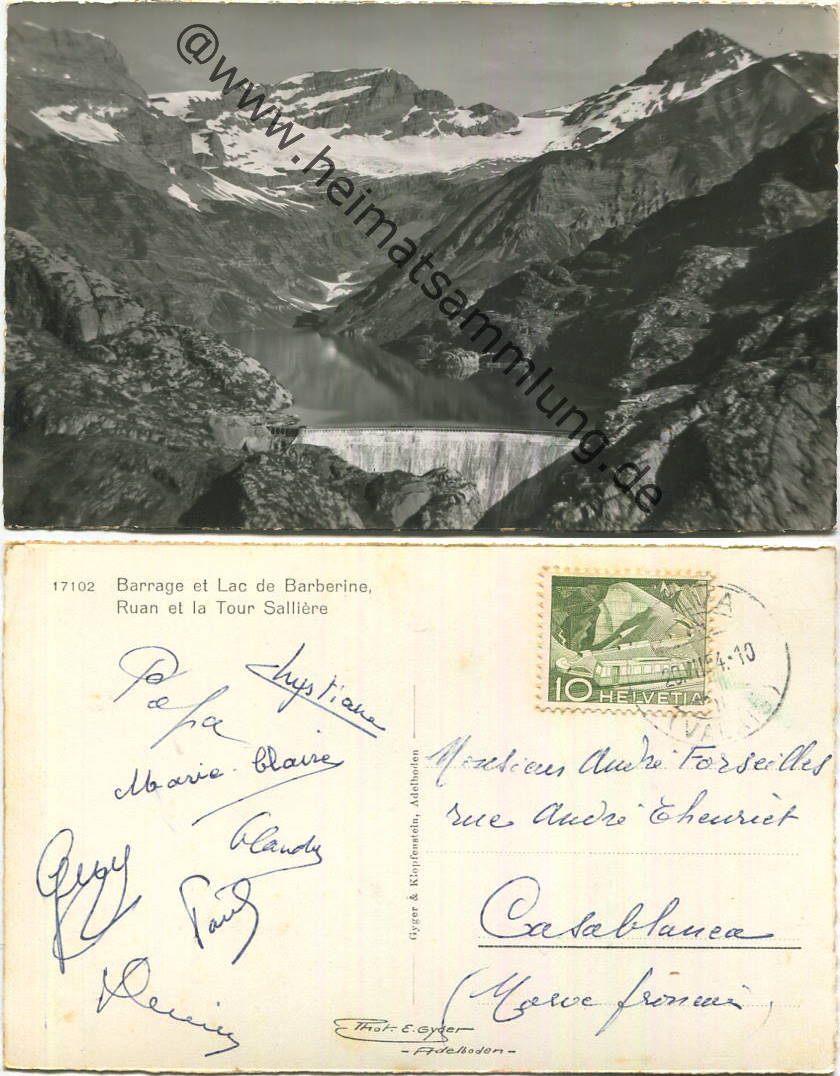 @www.heimatsammlung.de
17102 Barrage et Lac de Barberine,
Ruan et la Tour Sallière
10 HELVETIA
Chrystiane
Papa
Marie-Claire
Claudy
Guy
Paul
Monsieur André Forseilles
rue André Theuriet
Casablanca
(Maroc français)
Gyger & Klopfenstein, Adelboden
Phot. E. Gyger
- Adelboden -